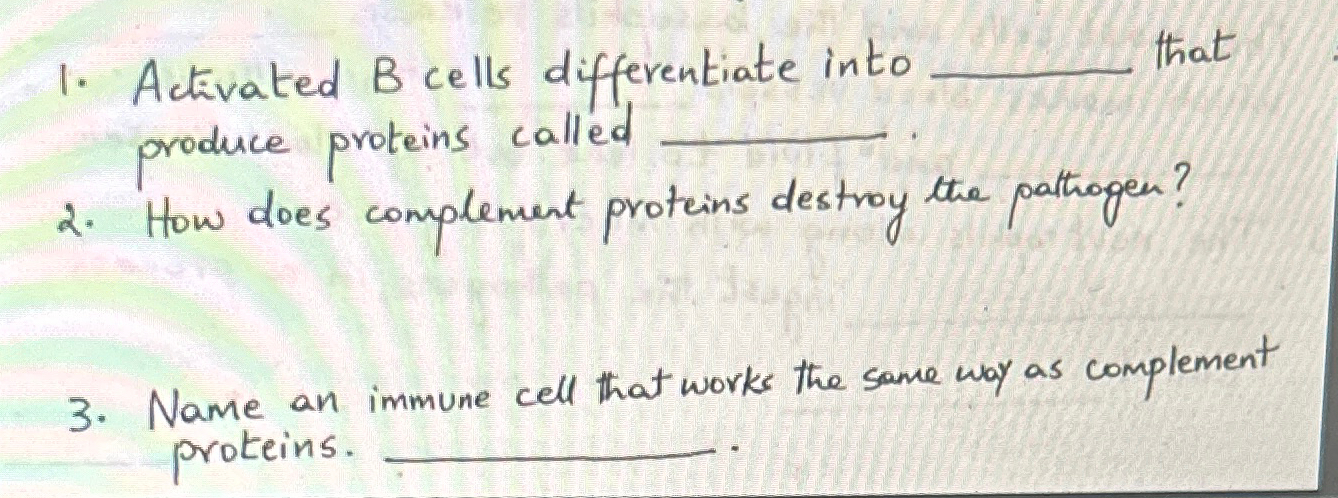 1. Activated B cells differentiate into ________ that
produce proteins called ________.
2. How does complement proteins destroy the pathogen?
3. Name an immune cell that works the same way as complement
proteins. ________.